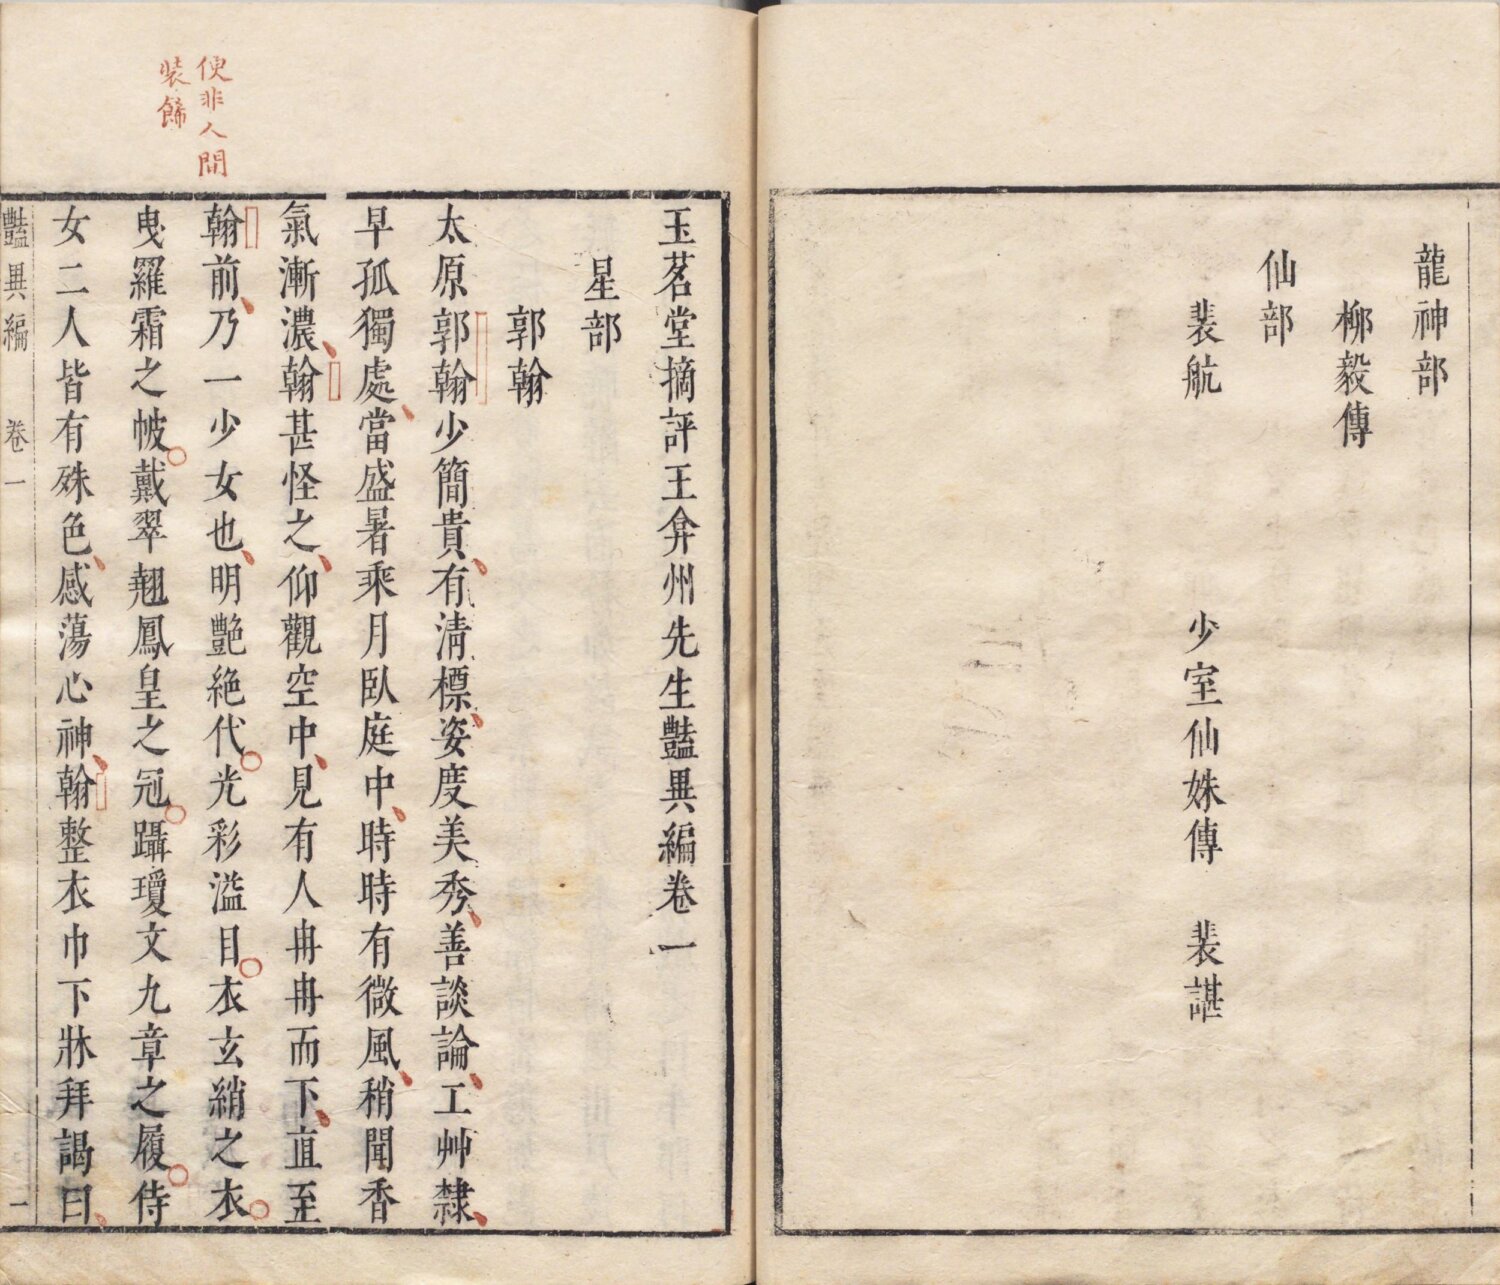 龍神部
柳毅傳
仙部
裴航　少室仙姝傳　裴諶
玉茗堂摘評王弇州先生豔異編卷一
星部
郭翰
太原郭翰少簡貴有清標姿度美秀善談論工艸隸
早孤獨處當盛暑乘月臥庭中時時有微風稍聞香
氣漸濃翰甚怪之仰觀空中見有人冉冉而下直至
翰前乃一少女也明艷絕代光彩溢目衣玄綃之衣
曳羅霜之帔戴翠翹鳳皇之冠躡瓊文九章之履侍
女二人皆有殊色感蕩心神翰整衣巾下牀拜謁曰
便非人間
裝餙
豔異編　卷一　一